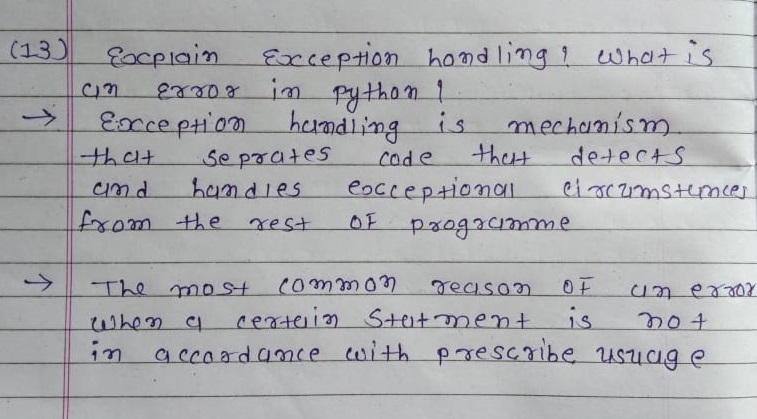 (13) Explain Exception handling? What is
an error in python?
→ Exception handling is mechanism
that seprates code that detects
and handles exceptional circumstances
from the rest of programme
→ The most common reason of an error
when a certain statment is not
in accordance with prescribe usuage